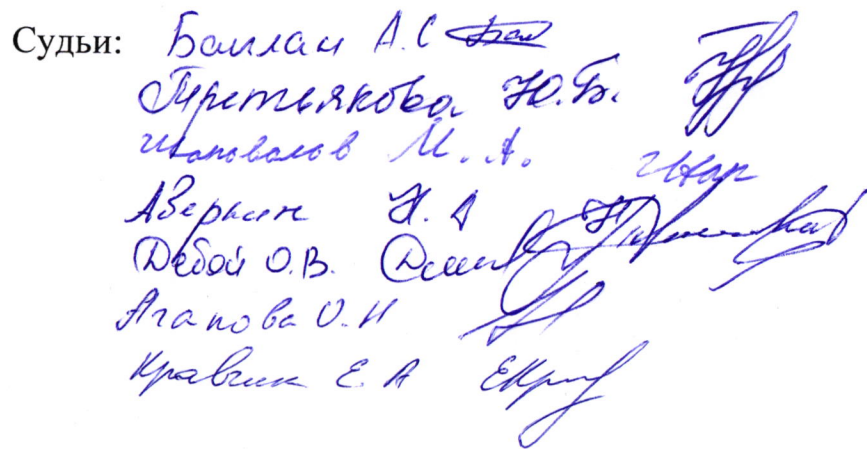 Судьи: Баклан А.С
Третьякова Ю.Б.
Шаповалов М.А.
Аверкин Н.А
Дебой О.В.
Агапова О.Н
Кравчик Е.А